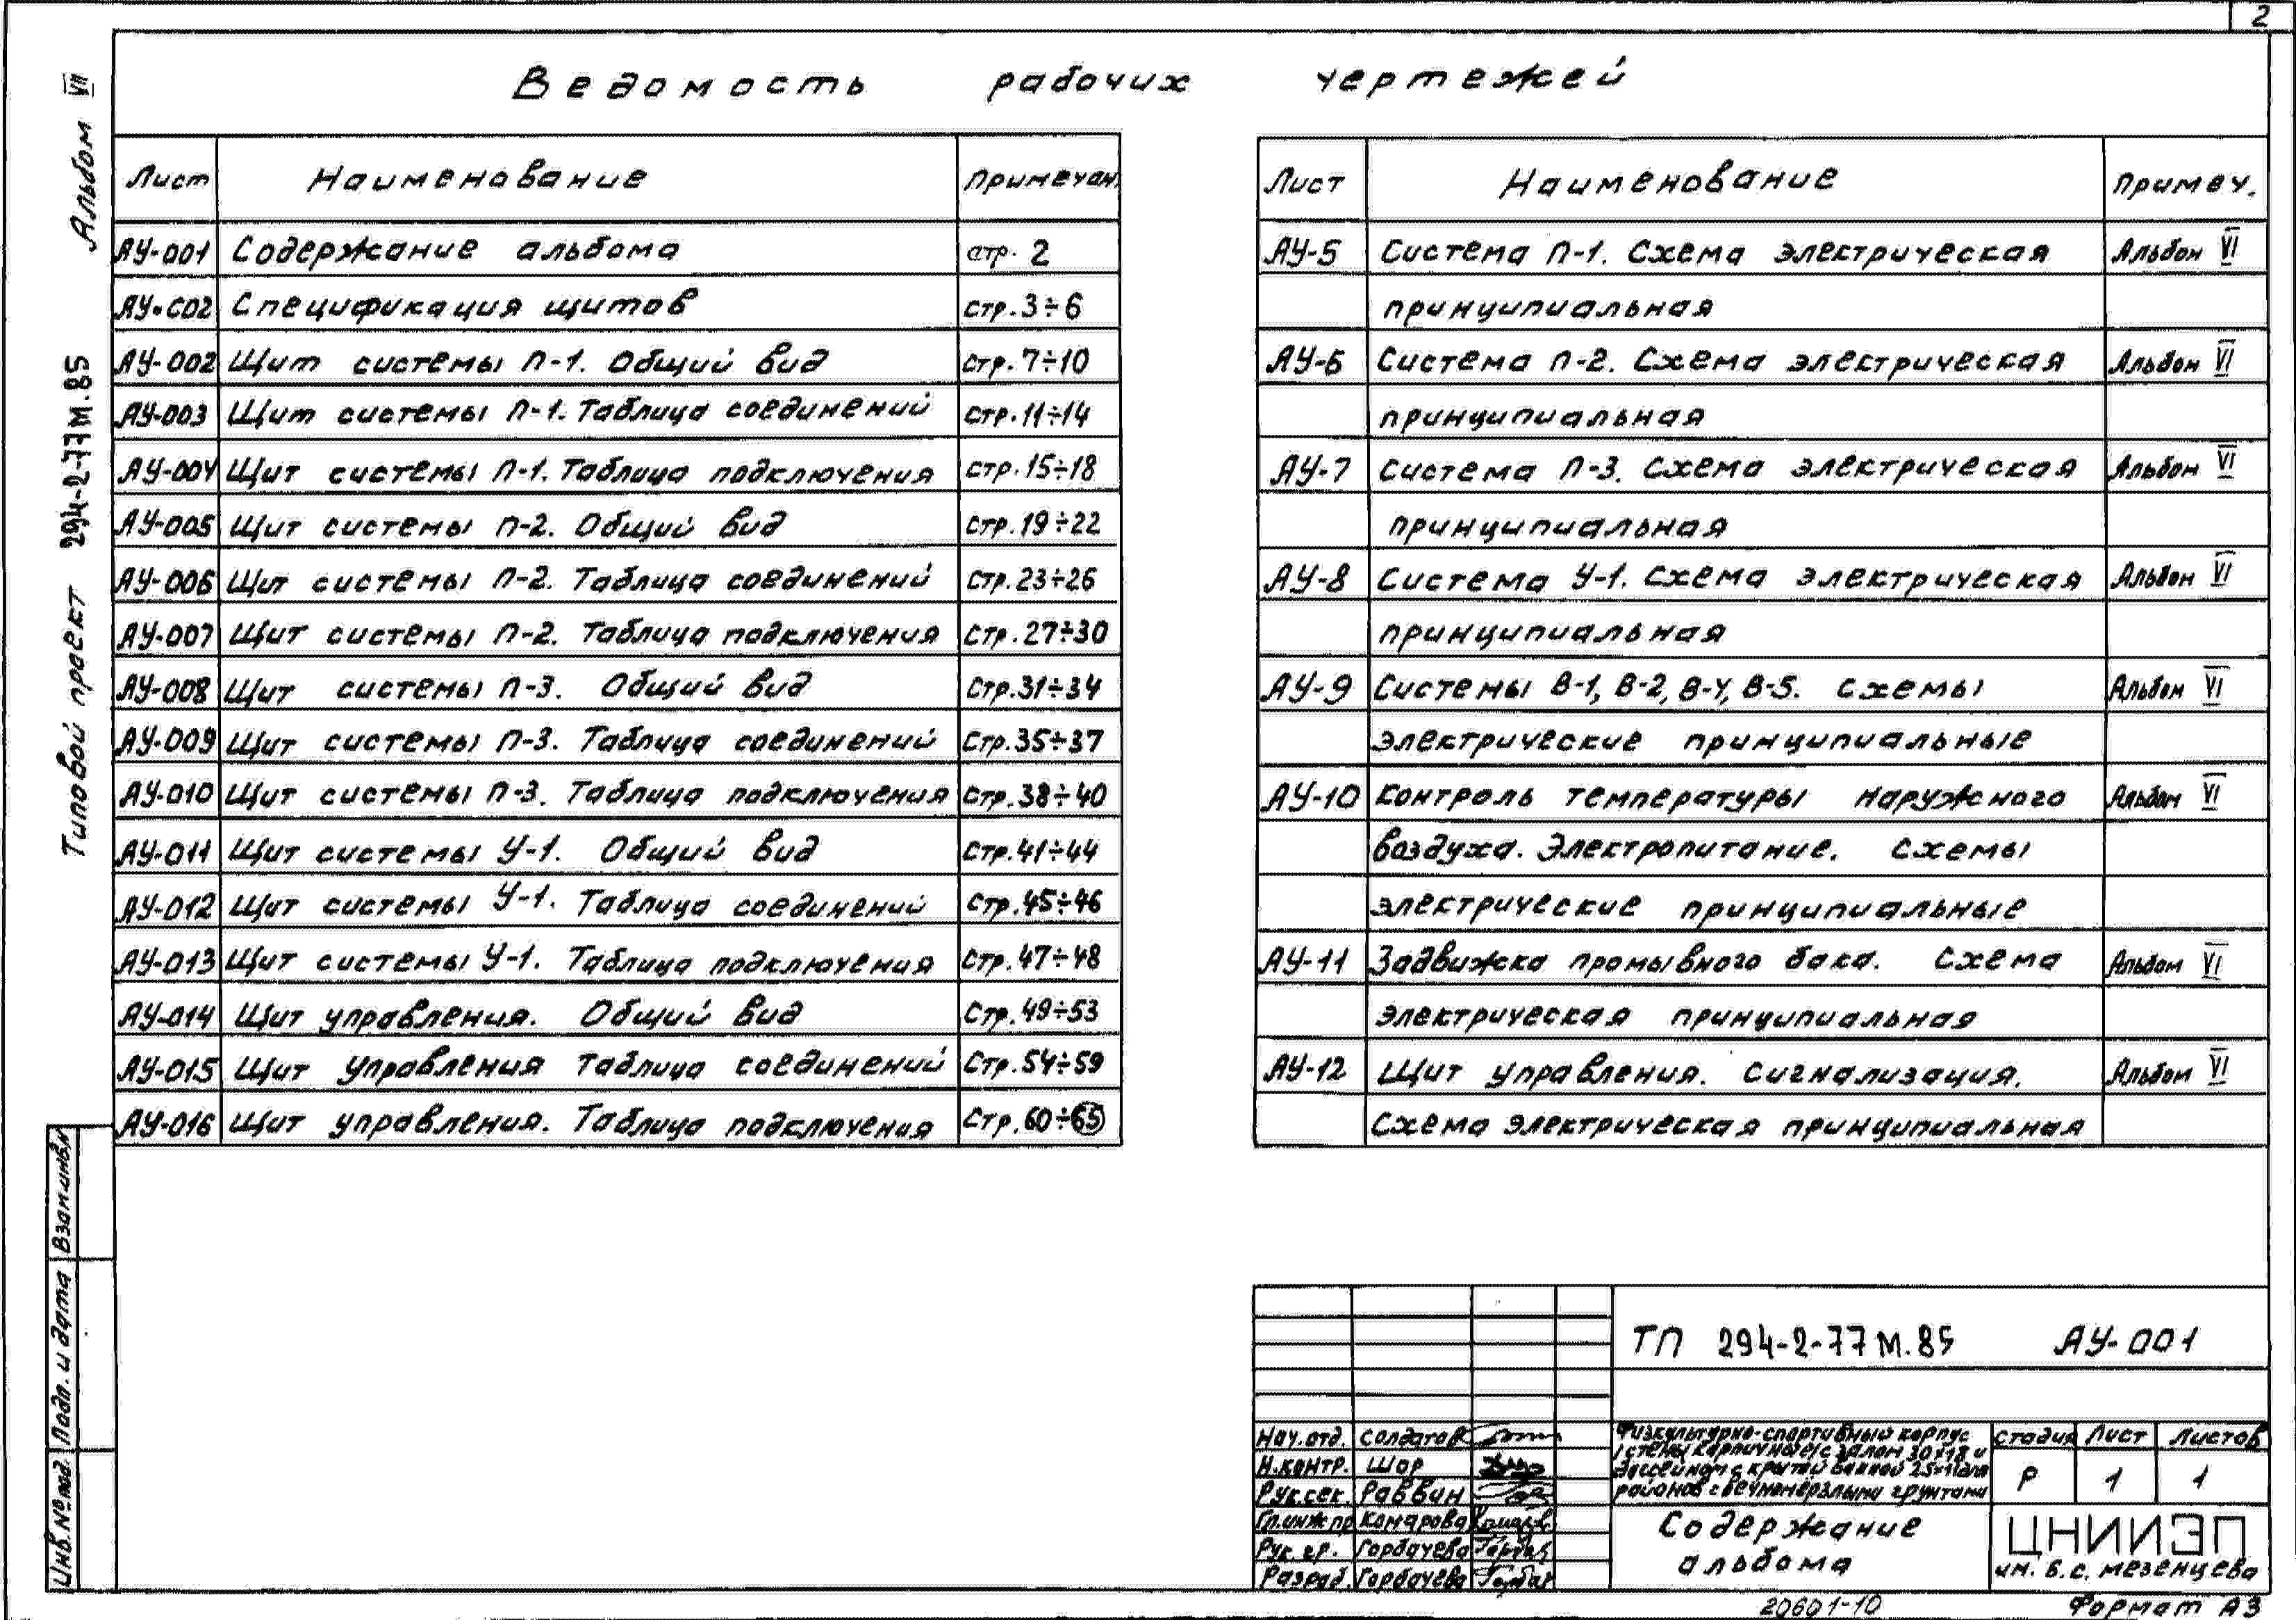 2
Ведомость рабочих чертежей
Альбом VII
Типовой проект 294-2-77м.85
Лист Наименование Примечан.
АУ-001 Содержание альбома стр. 2
АУ-С02 Спецификация щитов стр.3÷6
АУ-002 Щит системы П-1. Общий вид стр.7÷10
АУ-003 Щит системы П-1. Таблица соединений стр.11÷14
АУ-004 Щит системы П-1. Таблица подключения стр.15÷18
АУ-005 Щит системы П-2. Общий вид стр.19÷22
АУ-006 Щит системы П-2. Таблица соединений стр.23÷26
АУ-007 Щит системы П-2. Таблица подключения стр.27÷30
АУ-008 Щит системы П-3. Общий вид стр.31÷34
АУ-009 Щит системы П-3. Таблица соединений стр.35÷37
АУ-010 Щит системы П-3. Таблица подключения стр.38÷40
АУ-011 Щит системы У-1. Общий вид стр.41÷44
АУ-012 Щит системы У-1. Таблица соединений стр.45÷46
АУ-013 Щит системы У-1. Таблица подключения стр.47÷48
АУ-014 Щит управления. Общий вид стр.49÷53
АУ-015 Щит управления Таблица соединений стр.54÷59
АУ-016 Щит управления. Таблица подключения стр.60÷65
Лист Наименование Примеч.
АУ-5 Система П-1. Схема электрическая Альбом VI
принципиальная
АУ-6 Система П-2. Схема электрическая Альбом VI
принципиальная
АУ-7 Система П-3. Схема электрическая Альбом VI
принципиальная
АУ-8 Система У-1. Схема электрическая Альбом VI
принципиальная
АУ-9 Системы В-1, В-2, В-4, В-5. схемы Альбом VI
электрические принципиальные
АУ-10 Контроль температуры наружного Альбом VI
воздуха. Электропитание. Схемы
электрические принципиальные
АУ-11 Задвижка промывного бака. Схема Альбом VI
электрическая принципиальная
АУ-12 Щит управления. Сигнализация. Альбом VI
Схема электрическая принципиальная
Взам.инв.№
Подп. и дата
Инв.№ под.
ТП 294-2-77м.85 АУ-001
Нач.отд. Солдатов
Н.контр. Шор
Рук.сек. Раввин
Гл.инж.пр Комарова
Рук. гр. Горбачева
Разраб. Горбачева
Физкультурно-спортивный корпус
(стены кирпичные) с залом 30×18 и
бассейном с крытой ванной 25×11 для
районов с вечномерзлыми грунтами
Стадия Лист Листов
Р 1 1
Содержание
альбома
ЦНИИЭП
им. Б.С. Мезенцева
20601-10 Формат А3